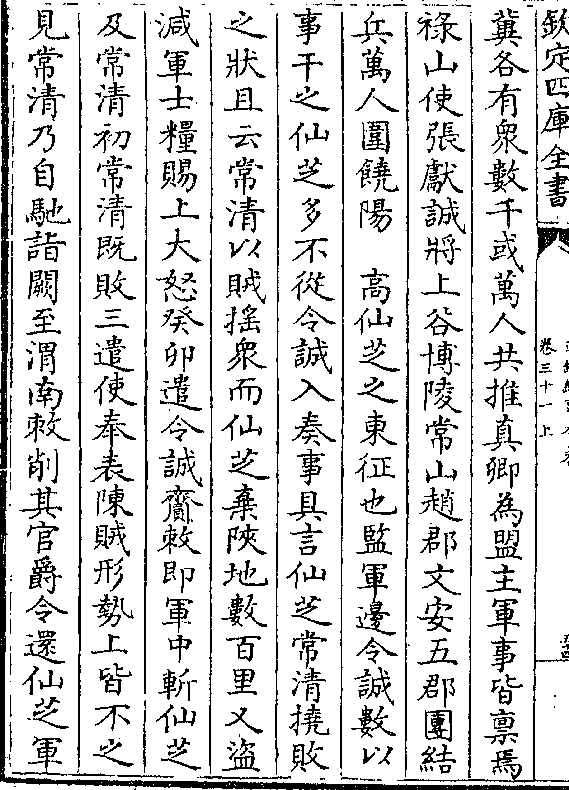 欽定四庫全書
卷三十一上
冀各有衆數千或萬人共推真卿為盟主軍事皆禀焉
祿山使張獻誠將上谷博陵常山趙郡文安五郡團結
兵萬人圍饒陽　高仙芝之東征也監軍邊令誠數以
事干之仙芝多不從令誠入奏事具言仙芝常清撓敗
之狀且云常清以賊揺衆而仙芝棄陜地數百里又盜
減軍士糧賜上大怒癸卯遣令誠齎敕即軍中斬仙芝
及常清初常清既敗三遣使奉表陳賊形勢上皆不之
見常清乃自馳詣闕至渭南敕削其官爵令還仙芝軍